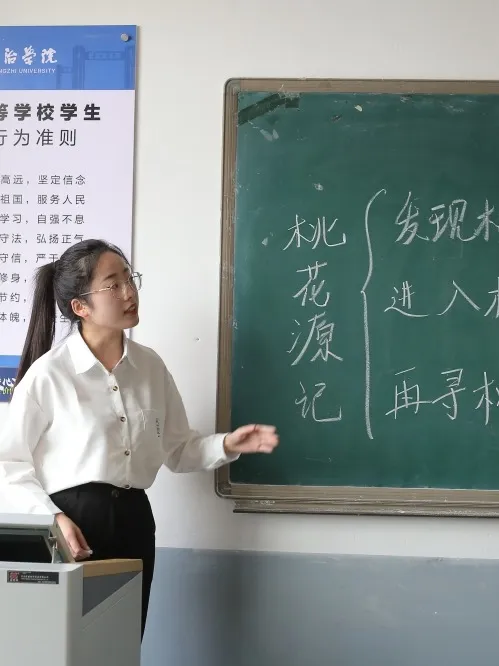 治学院
NGZHI UNIVERSITY
等学校学生
行为准则
高远，坚定信念
祖国，服务人民
学习，自强不息
守法，弘扬正气
守信，严于
修身，
节约，
体魄，
桃花源记
发现
进入
再寻